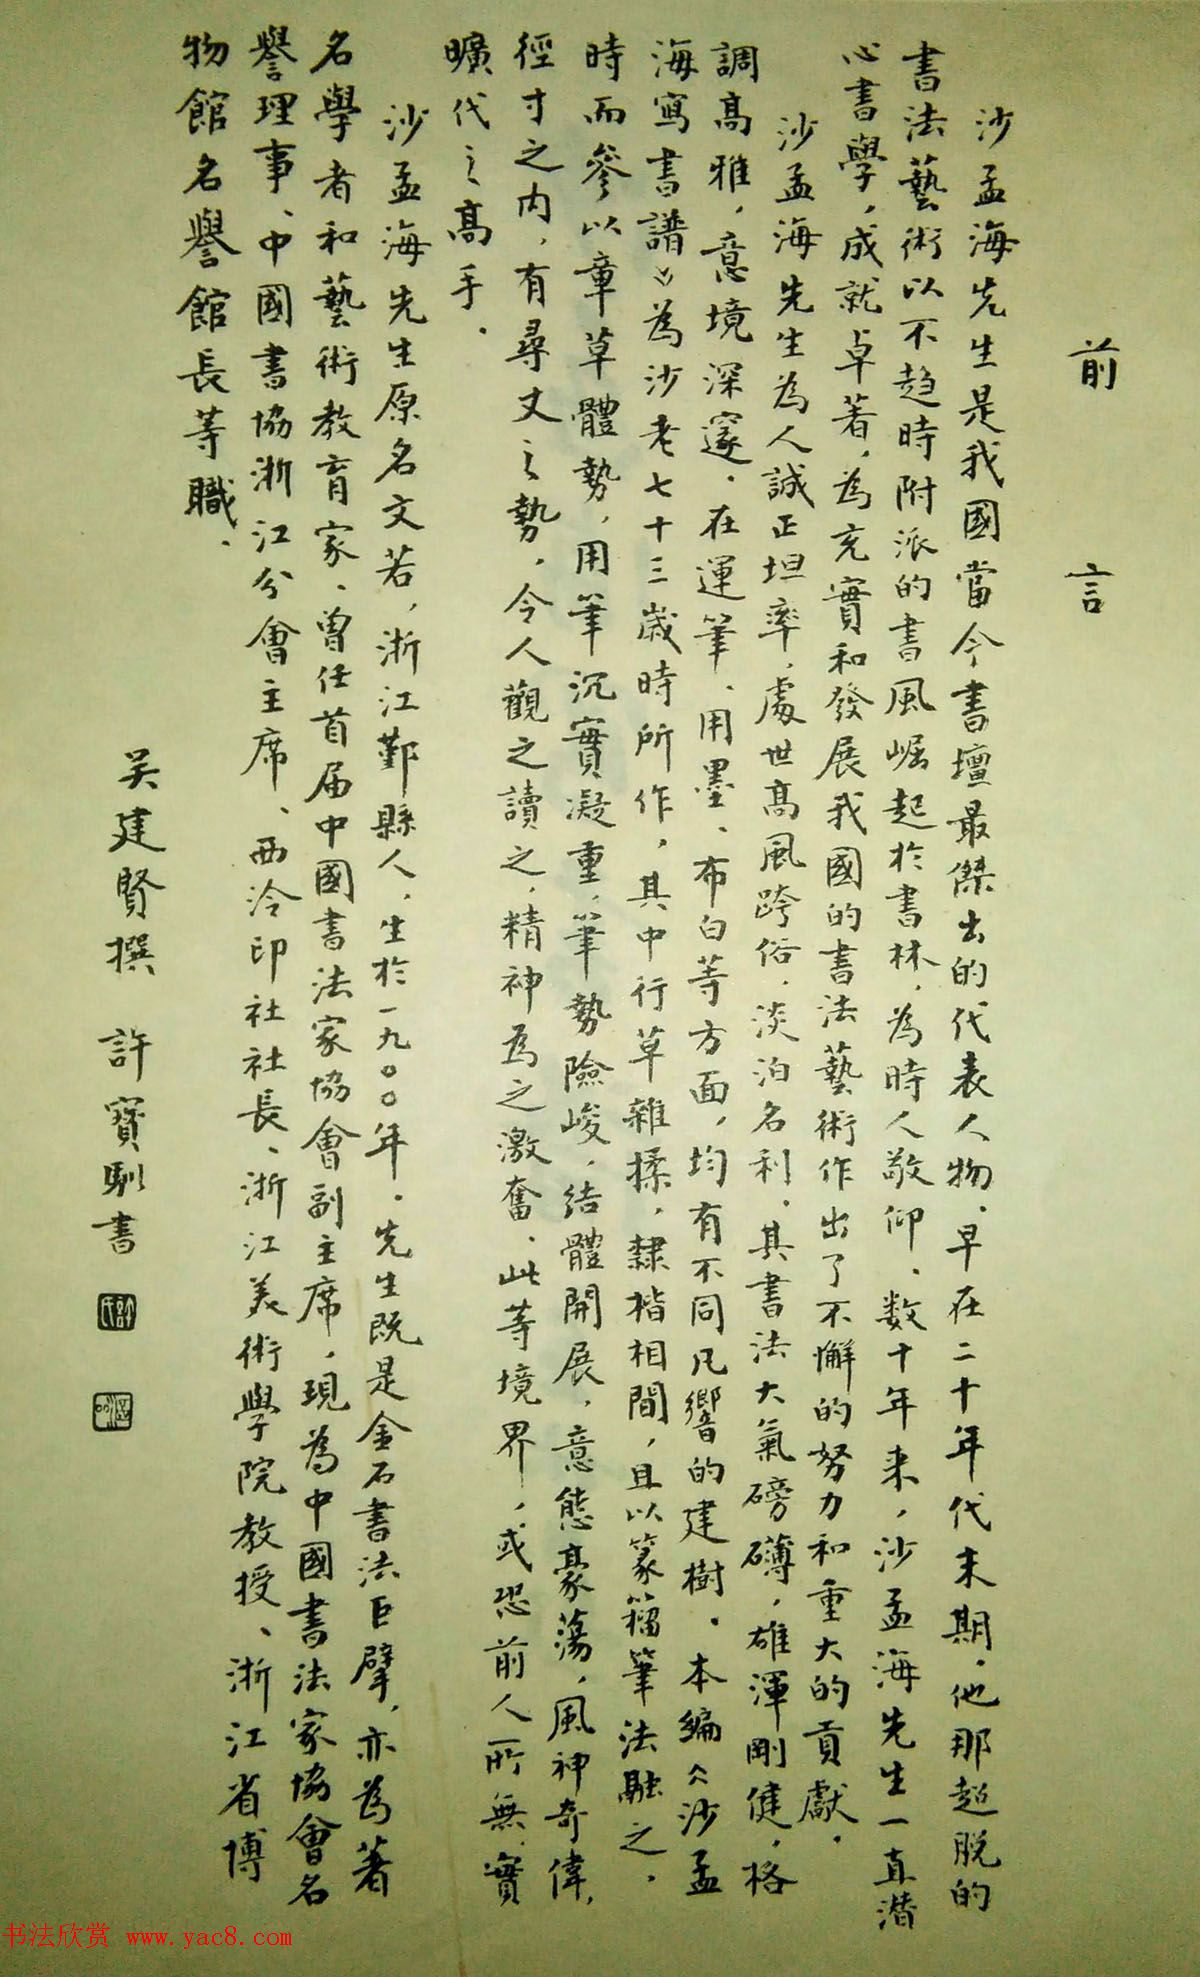 前言
沙孟海先生是我國當今書壇最傑出的代表人物．早在二十年代末期，他那超脫的
書法藝術以不趋時附派的書風崛起於書林，為時人敬仰．数十年来，沙孟海先生一直潜
心書學，成就卓著，為充實和發展我國的書法藝術作出了不懈的努力和重大的貢獻．
沙孟海先生為人誠正坦率，處世高風跨俗，淡泊名利．其書法大氣磅礴，雄渾剛健，格
調高雅，意境深邃．在運筆、用墨、布白等方面，均有不同凡響的建樹．本編《沙孟
海寫書譜》為沙老七十三歲時所作，其中行草雜揉，隸楷相間，且以篆籀筆法融之，
時而參以章草體勢，用筆沉實凝重，筆勢險峻，結體開展，意態豪蕩，風神奇偉，
徑寸之内，有尋丈之勢，令人觀之讀之，精神為之激奮．此等境界，或恐前人所無，實
曠代之高手．
沙孟海先生原名文若，浙江鄞縣人，生於一九〇〇年．先生既是金石書法巨擘，亦為著
名學者和藝術教育家．曾任首届中國書法家協會副主席，現為中國書法家協會名
譽理事、中國書協浙江分會主席、西泠印社社長、浙江美術學院教授、浙江省博
物館名譽館長等職．
吴建賢撰 許寶馴書
书法欣赏 www.yac8.com